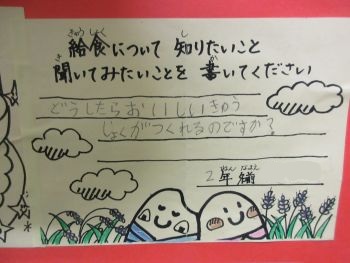 きゅうしょく し
給食について 知りたいこと
き か
聞いてみたいことを 書いてください
どうしたらおいしいきゅう
しょくがつくれるのですか?
ねん なまえ
2年 名前